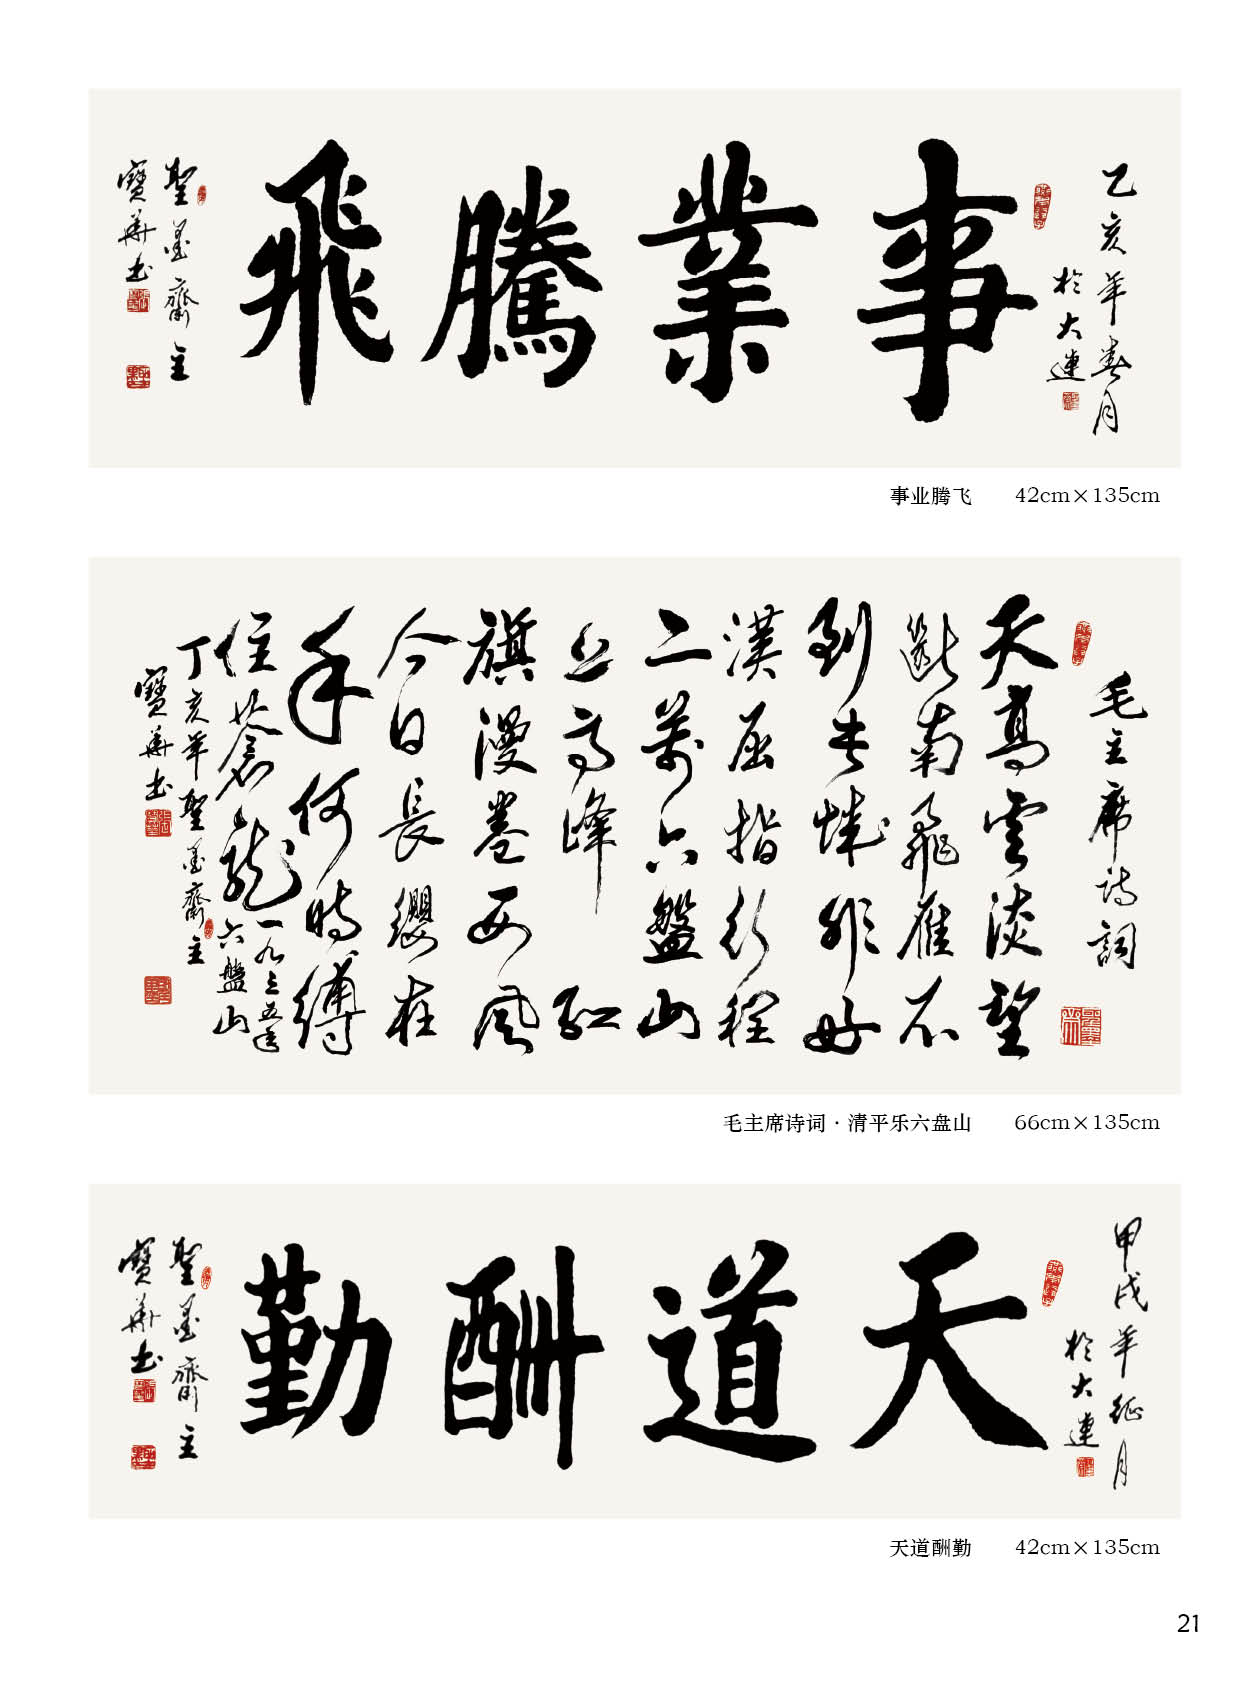 乙亥年春月
於大連
事業騰飛
聖墨齋主
寶華书
事业腾飞 42cm×135cm
毛主席诗詞
天高雲淡望
斷南飛雁不
到長城非好
漢屈指行程
二萬六盤山
上高峰红
旗漫卷西風
今日長纓在
手何時縛
住蒼龍一九三五年
六盤山
丁亥年聖墨齋主
寶華书
毛主席诗词·清平乐六盘山 66cm×135cm
甲戌年征月
於大連
天道酬勤
聖墨齋主
寶華书
天道酬勤 42cm×135cm
21